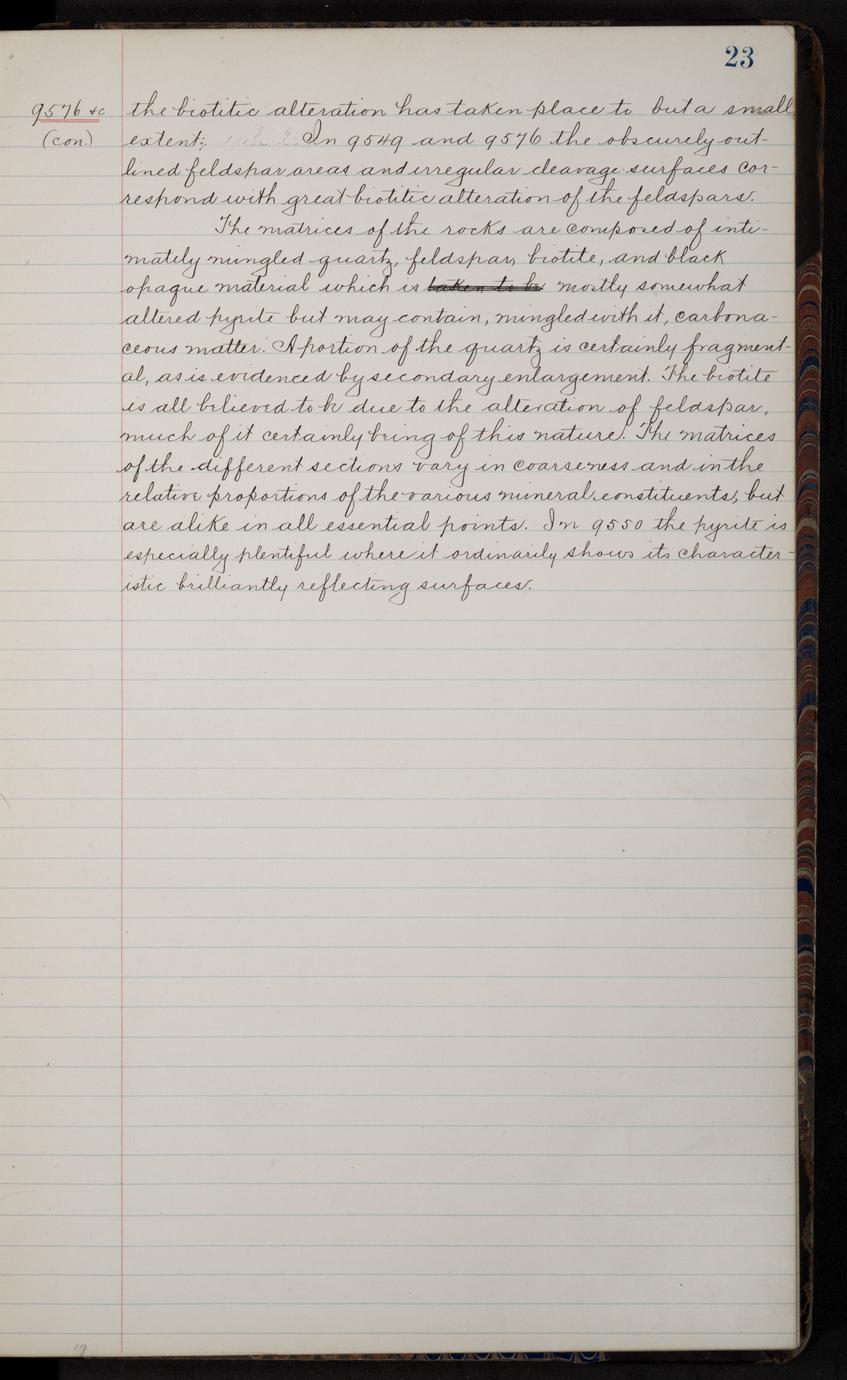 23
9576 &c the biotitic alteration has taken place to but a small
(con.) extent; In 9549 and 9576 the obscurely out-
lined feldspar areas and irregular cleavage surfaces cor-
respond with great biotitic alteration of the feldspars.
The matrices of the rocks are composed of inti-
mately mingled quartz, feldspar, biotite, and black
opaque material which is taken to be mostly somewhat
altered pyrite but may contain, mingled with it, carbona-
ceous matter. A portion of the quartz is certainly fragment-
al, as is evidenced by secondary enlargement. The biotite
is all believed to be due to the alteration of feldspar,
much of it certainly being of this nature. The matrices
of the different sections vary in coarseness and in the
relative proportions of the various mineral constituents, but
are alike in all essential points. In 9550 the pyrite is
especially plentiful where it ordinarily shows its character-
istic brilliantly reflecting surfaces.